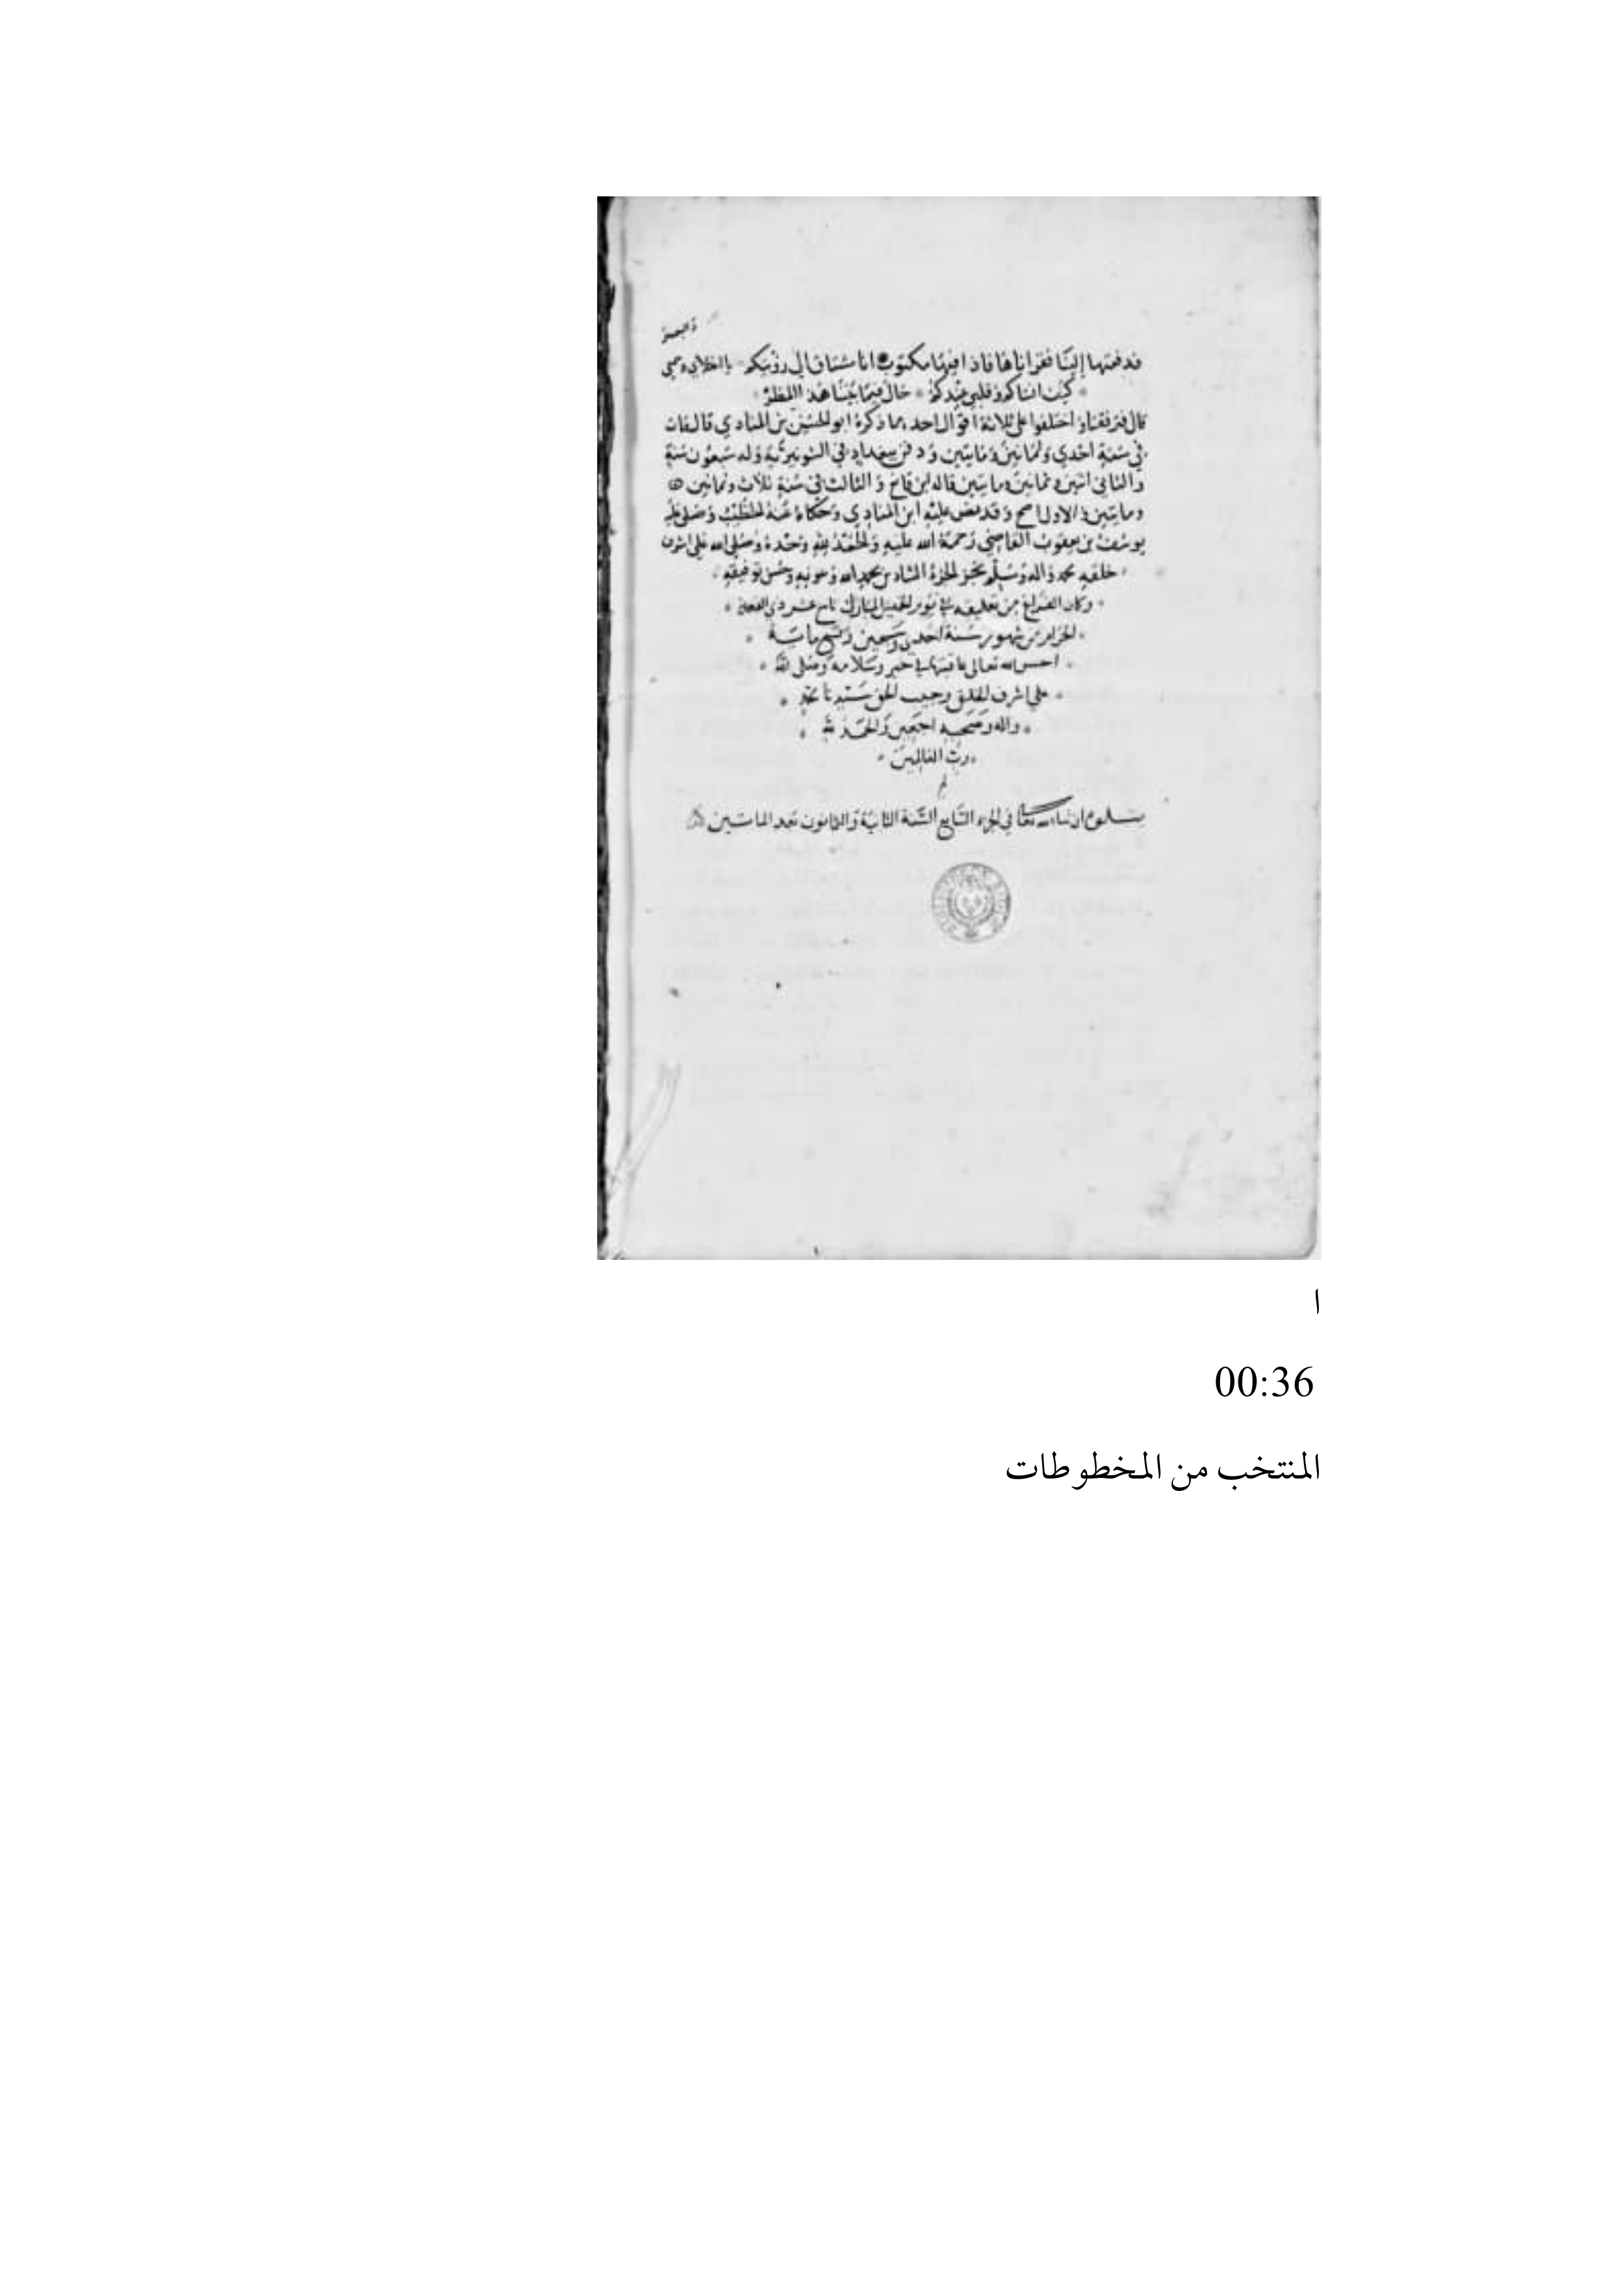 فدفعتها إلينا فقراناها فاذا فيها مكتوب انا مشتاق الي رؤيتكم يا اخلاي و
كيف انساكم وقلبي عندكم حال فيما بيننا هذا المطر
قال فترقفنا واختلفوا على ثلاثة اقوال احدها ما ذكره ابو الحسين بن المنادي قال مات
في سنة احدي وثمانين ومايتين ودفن ببغداد في الشونيزية وله سبعون سنة
والثاني اثنين وثمانين ومايتين قاله ابن قانع والثالث في سنة ثلاث وثمانين
ومايتين والاول اصح وقد نص عليه ابن المنادي وحكاه عنه الخطيب وصلى عليه
يوسف بن يعقوب القاضي رحمة الله عليه والحمد لله وحده وصلى الله على اشرف
خلقه محمد واله وسلم نجز الجزء السادس بحمد الله وعونه وحسن توفيقه
وكان الفراغ من تعليقه في يوم الخميس المبارك تاسع عشر ذي القعدة
الحرام من شهور سنة احدى وسبعين وتسع مائة
احسن الله تعالى عاقبتها في خير وسلامة وصلى الله
على اشرف الخلق وحبيب الحق سيدنا محمد
واله وصحبه اجمعين والحمد لله
رب العالمين
م
يتلوه ان شاء الله تعالى في الجزء السابع السنة الثانية والثمانون بعد المايتين
ا
00:36
المنتخب من المخطوطات